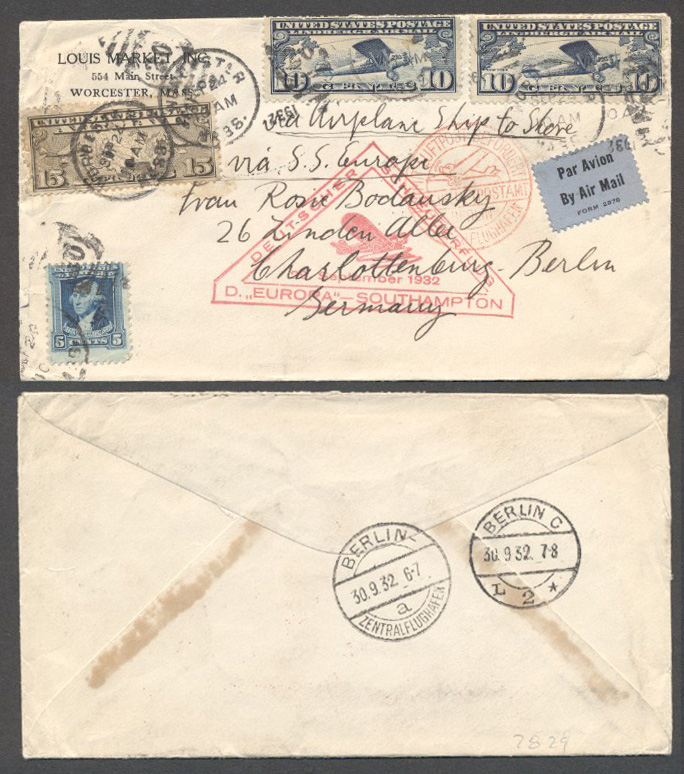 LOUIS MARKET, INC.
554 Main Street
WORCESTER, MASS.
UNITED STATES POSTAGE
LINDBERGH AIR MAIL
10 CENTS 10
UNITED STATES POSTAGE
LINDBERGH AIR MAIL
10 CENTS 10
15 15
Via Airplane Ship to Shore
via S.S. Europa
Par Avion
By Air Mail
FORM 2978
Frau Rosie Bodansky
26 Linden Allee
Charlottenburg-Berlin
Germany
DEUTSCHER
September 1932
D. „EUROPA"–SOUTHAMPTON
5 CENTS 5
BERLIN
30.9.32. 6-7
a
ZENTRALFLUGHAFEN
BERLIN C
30.9.32. 7-8
L 2 *
7529